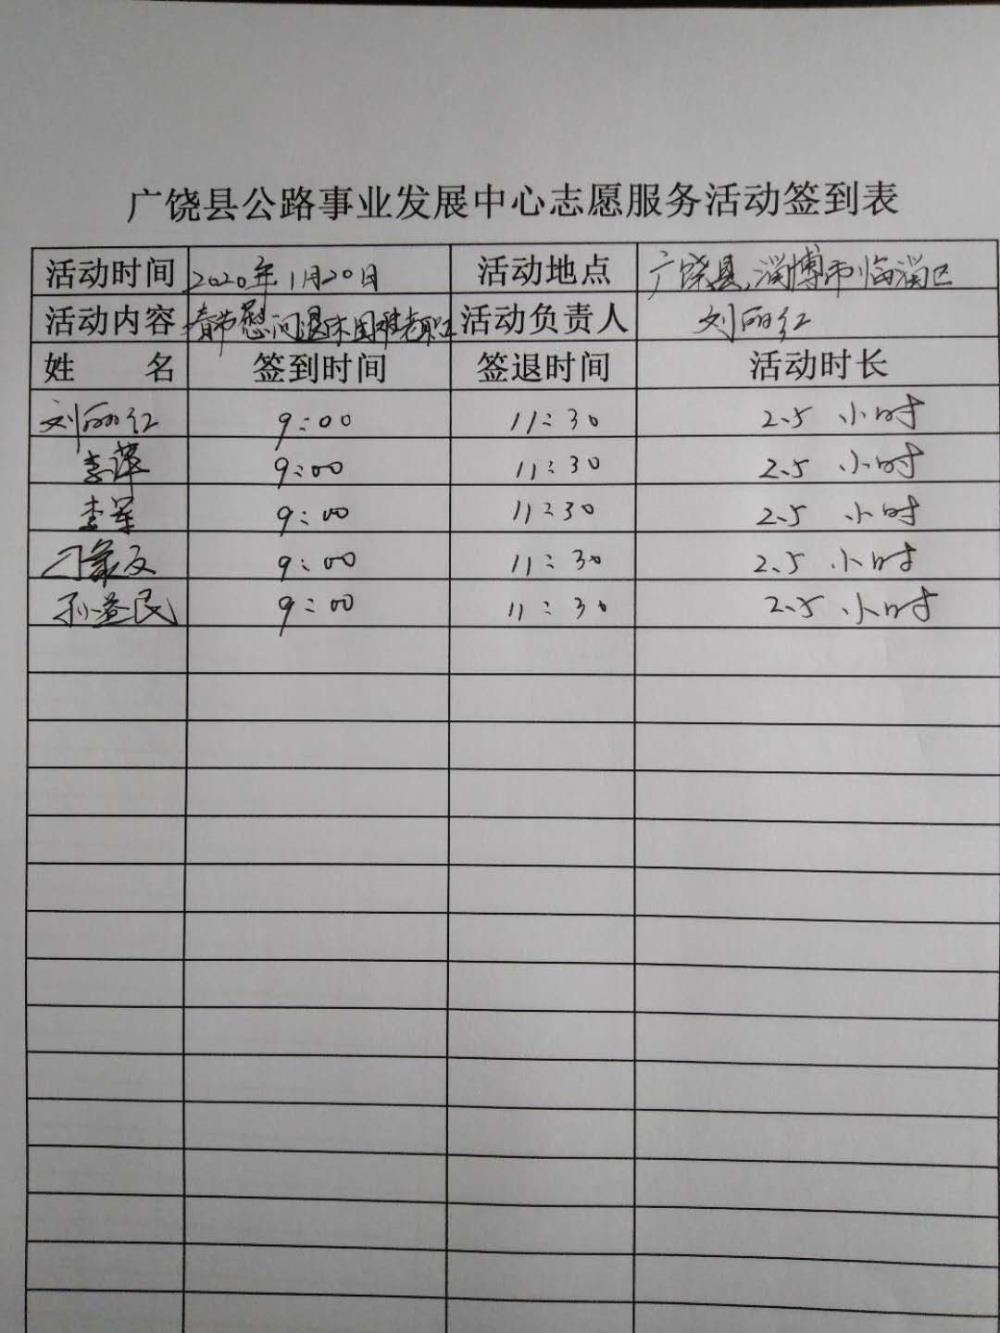 广饶县公路事业发展中心志愿服务活动签到表
活动时间 2020年1月20日 活动地点 广饶县,淄博市临淄区
活动内容 春节慰问退休困难老职工 活动负责人 刘丽红
姓 名 签到时间 签退时间 活动时长
刘丽红 9:00 11:30 2.5 小时
李萍 9:00 11:30 2.5 小时
李军 9:00 11:30 2.5 小时
9:00 11:30 2.5 小时
孙益民 9:00 11:30 2.5 小时